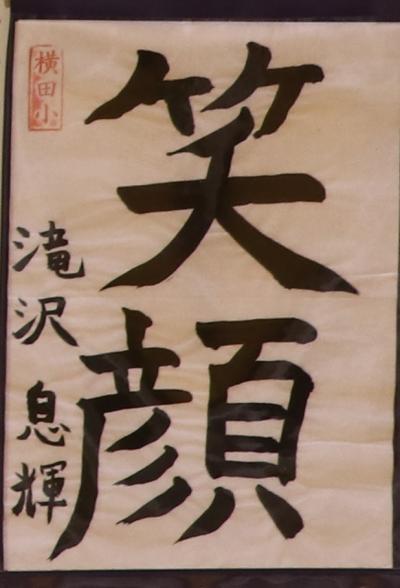 笑顔
滝沢息輝
横田小